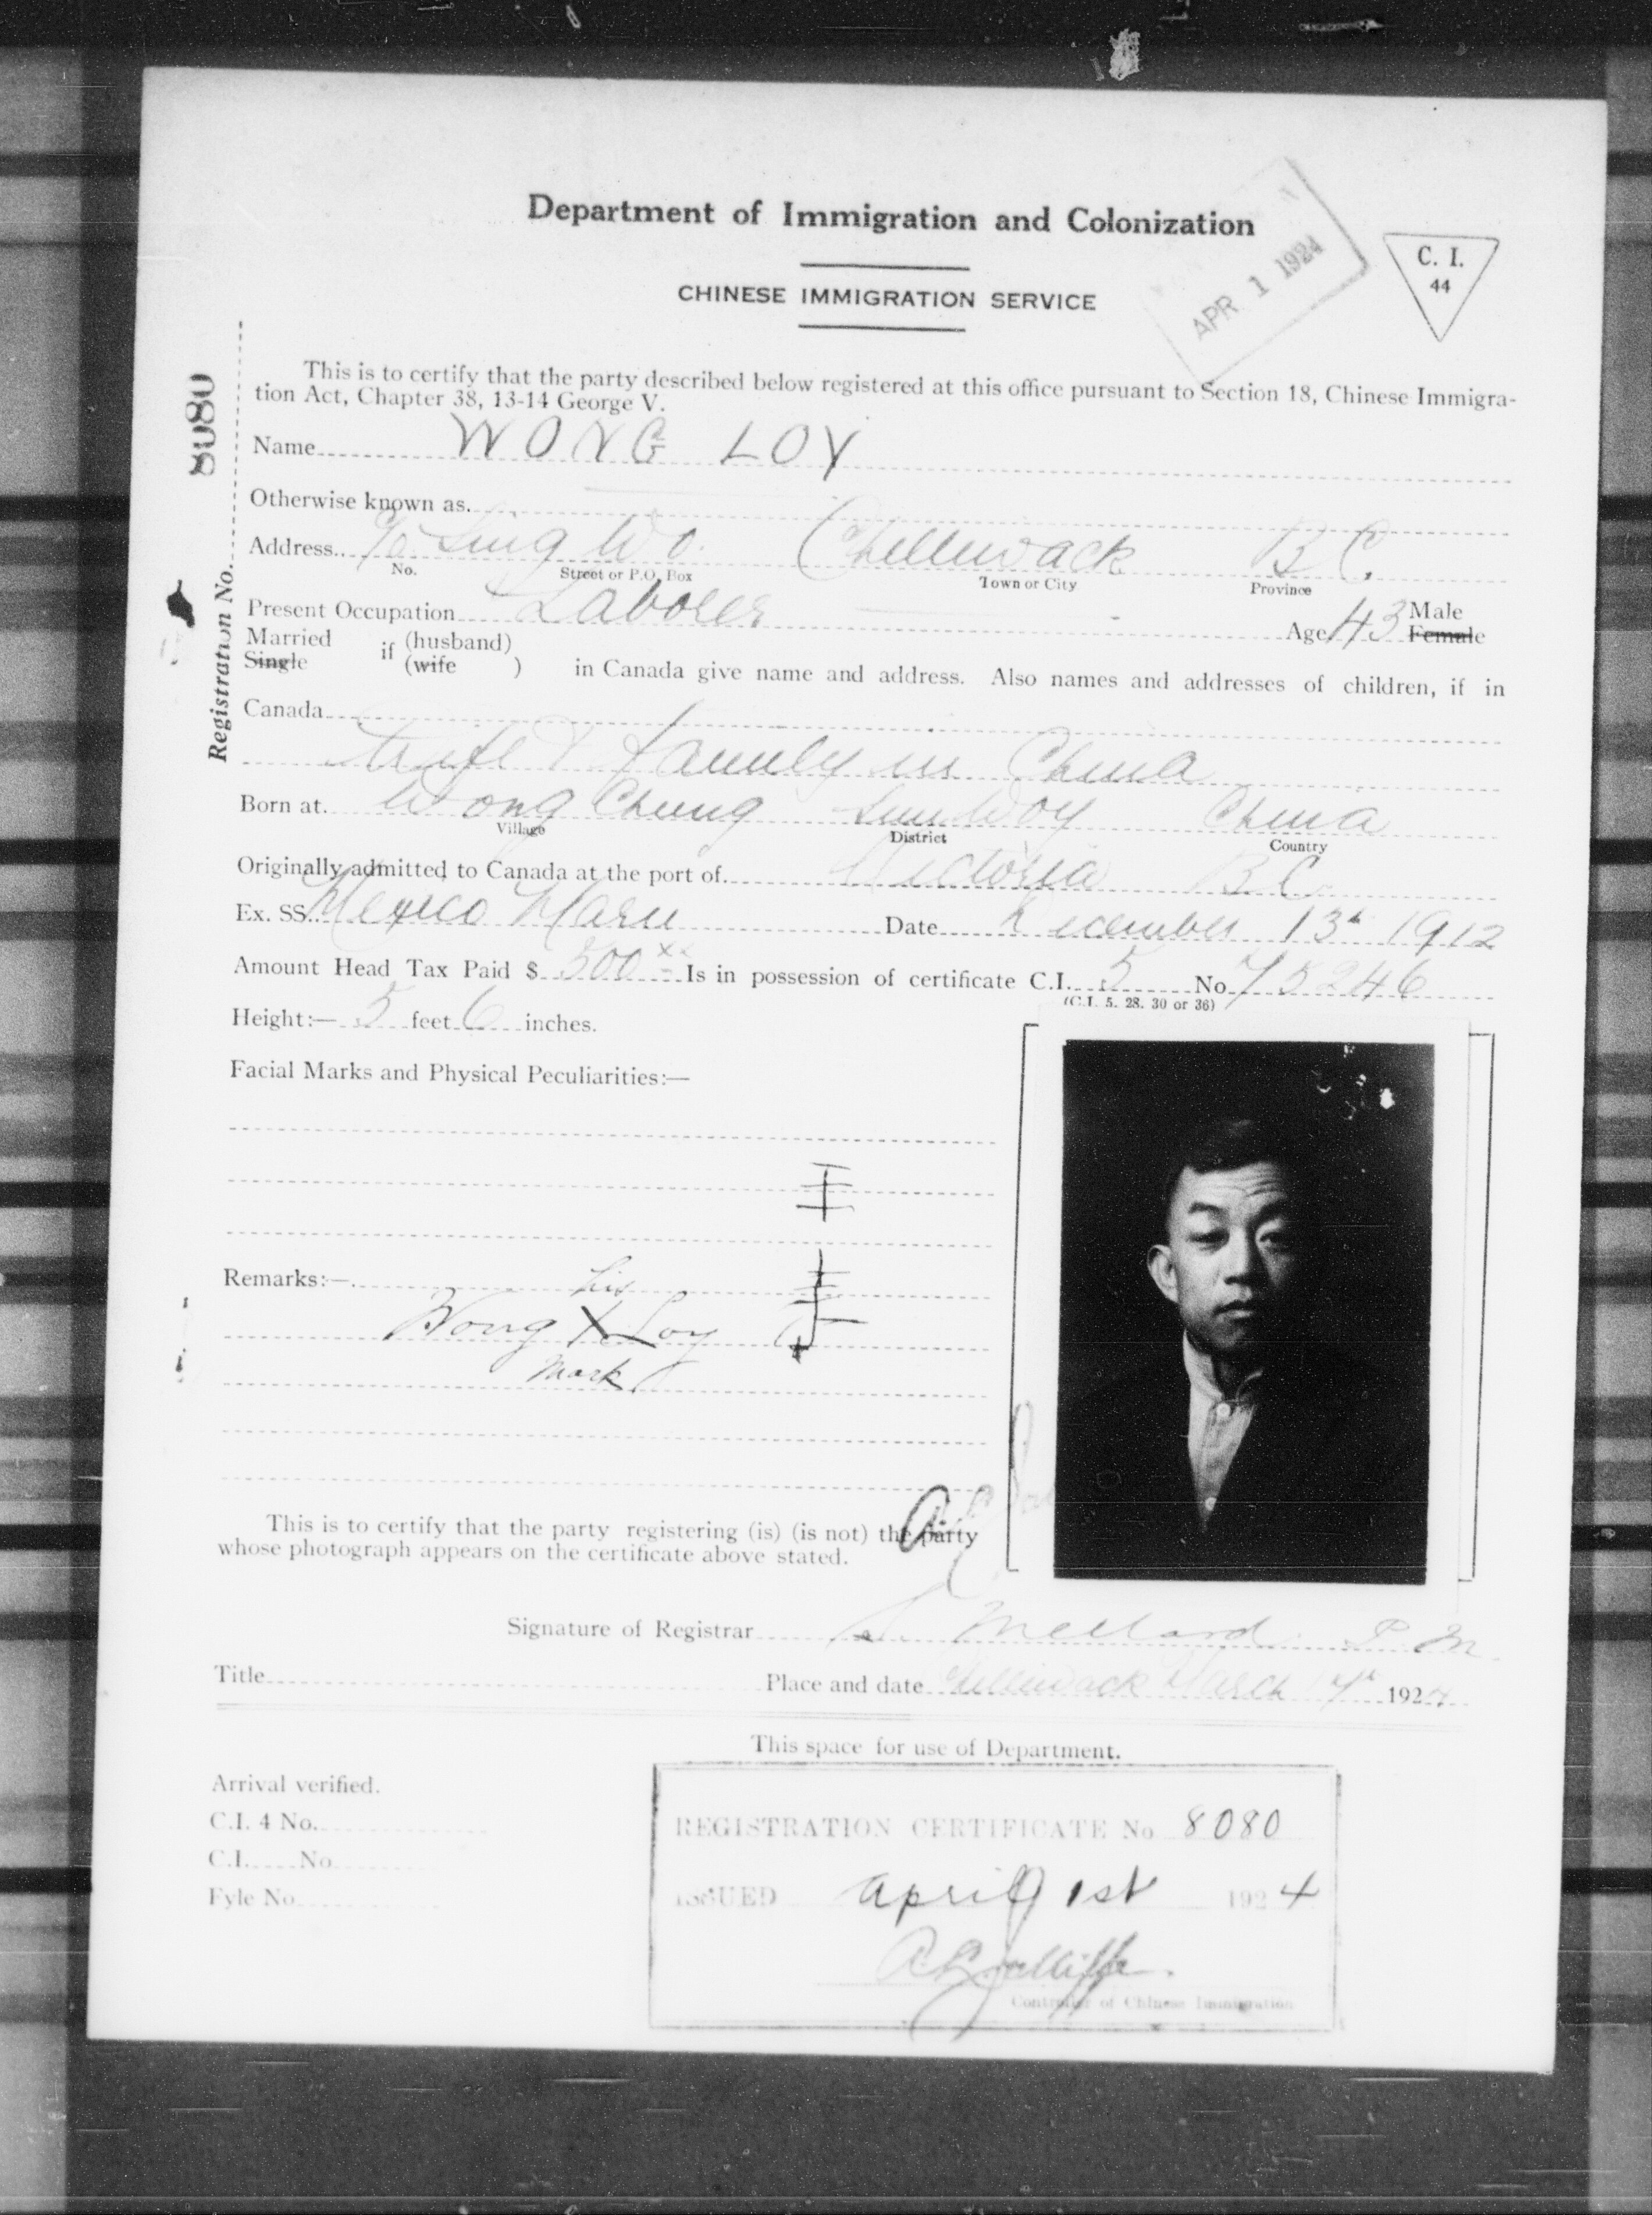 Department of Immigration and Colonization
CHINESE IMMIGRATION SERVICE
APR 1 1924
C. I.
44
Registration No. 8080
This is to certify that the party described below registered at this office pursuant to Section 18, Chinese Immigra-
tion Act, Chapter 38, 13-14 George V.
Name WONG LOY
Otherwise known as.
Address c/o Sing Wo. Chilliwack B C.
No. Street or P.O. Box Town or City Province
Present Occupation Laborer Age 43 Male
Female
Married if (husband)
Single (wife ) in Canada give name and address. Also names and addresses of children, if in
Canada
Wife & family in China
Born at. Wong Chung Sun Woy China
Village District Country
Originally admitted to Canada at the port of. Victoria B C.
Ex. SS. Mexico Maru Date December 13th 1912
Amount Head Tax Paid $ 500 xx Is in possession of certificate C.I. 5 No 75246
(C.I. 5. 28. 30 or 36)
Height:— 5 feet 6 inches.
Facial Marks and Physical Peculiarities:—
Remarks:—
his
Wong X Loy
mark
This is to certify that the party registering (is) (is not) the party
whose photograph appears on the certificate above stated.
Signature of Registrar Mellard P. M.
Title Place and date Chilliwack March 4th 1924
This space for use of Department.
Arrival verified.
C.I. 4 No.
C.I. No
Fyle No
REGISTRATION CERTIFICATE No 8080
ISSUED April 1st 1924
A L Jolliffe.
Controller of Chinese Immigration